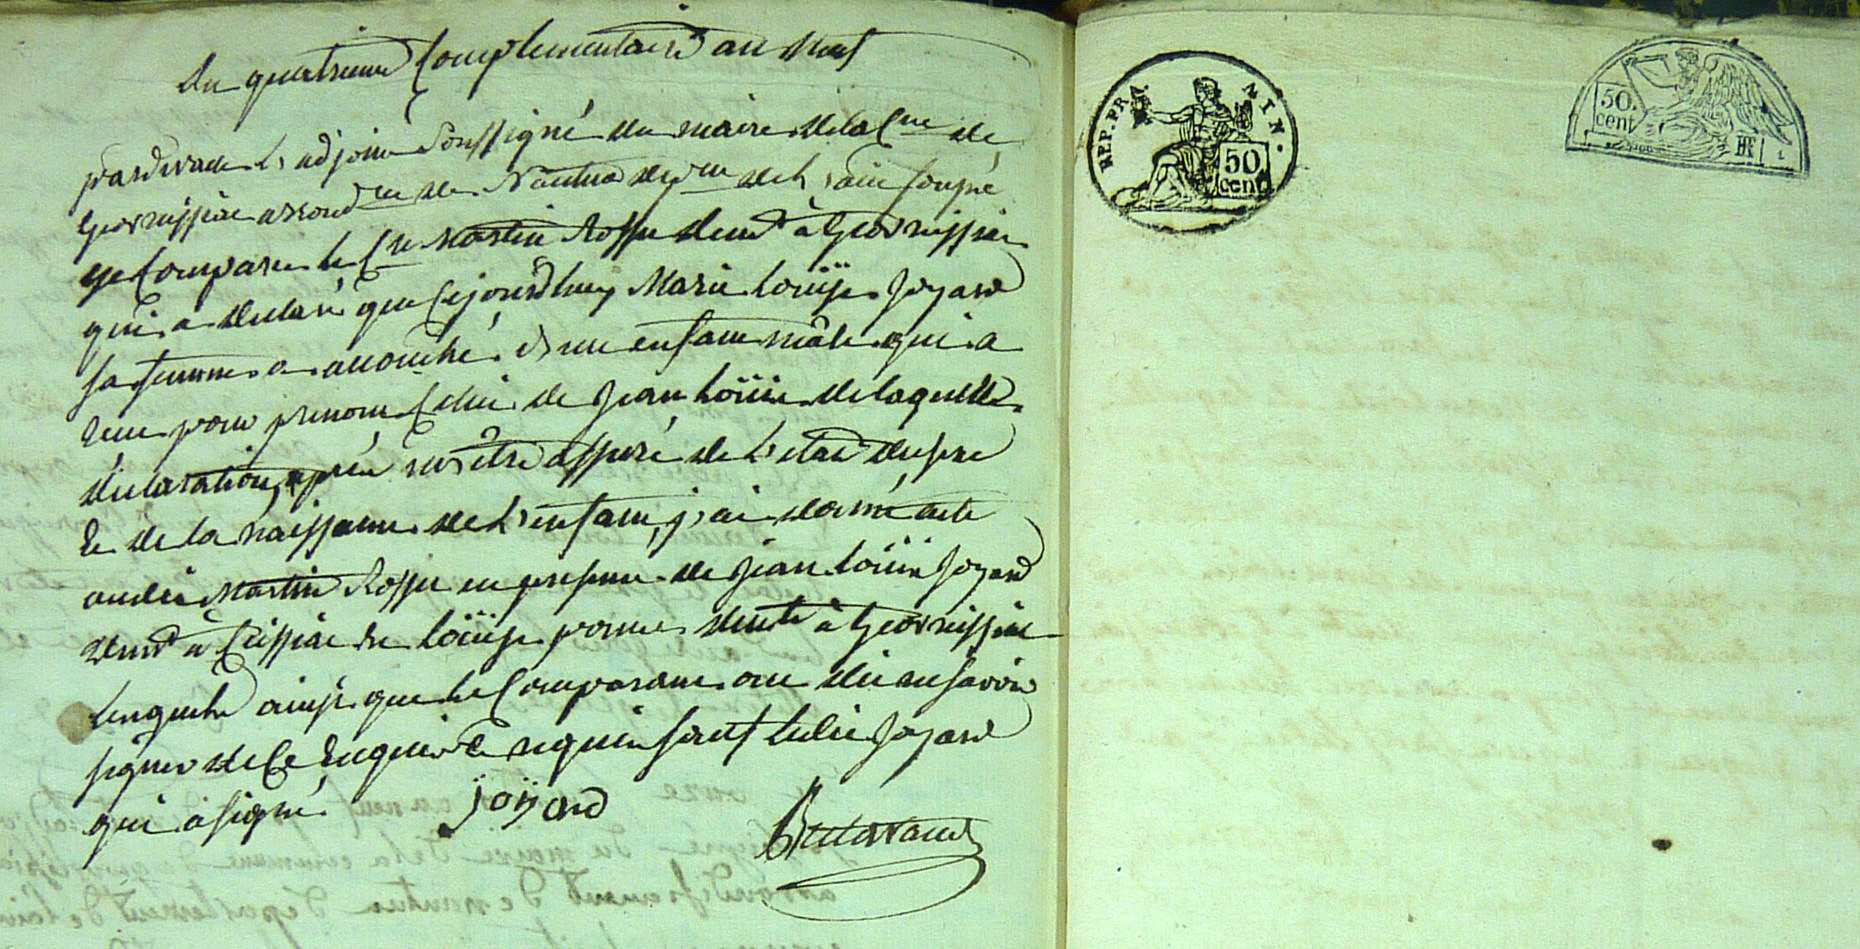 Du quatrieme Complementaire an Neuf
pardevant L'adjoint Soussigné du maire de la C.ne de
Geovreissiac arrond.nt de Nantua dep.nt de L'ain soussigné
est Comparu le C.en Martin Rosset dem.t à Geovreissiac
qui a declaré que Cejourd'huy Marie Loüise Joyard
sa femme a accouché d'un enfant mâle qui a
reçu pour prenom Celui de Jean Loüis de laquelle
declaration, après m'etre assuré de L'etat du sexe
Et de la naissance de L'enfant, j'ai donné acte
audit Martin Rosset en presence de Jean Loüis Joyard
dem.t à Ceissiac Et Loüise dem.te à Geovreissiac
Lesquels ainsi que le Comparant ont dit ne savoir
signer de Ce Enquis Et requis sauf ledit Joyard
qui a signé
joyard
REP. FRA.
50
cent
50.
cent